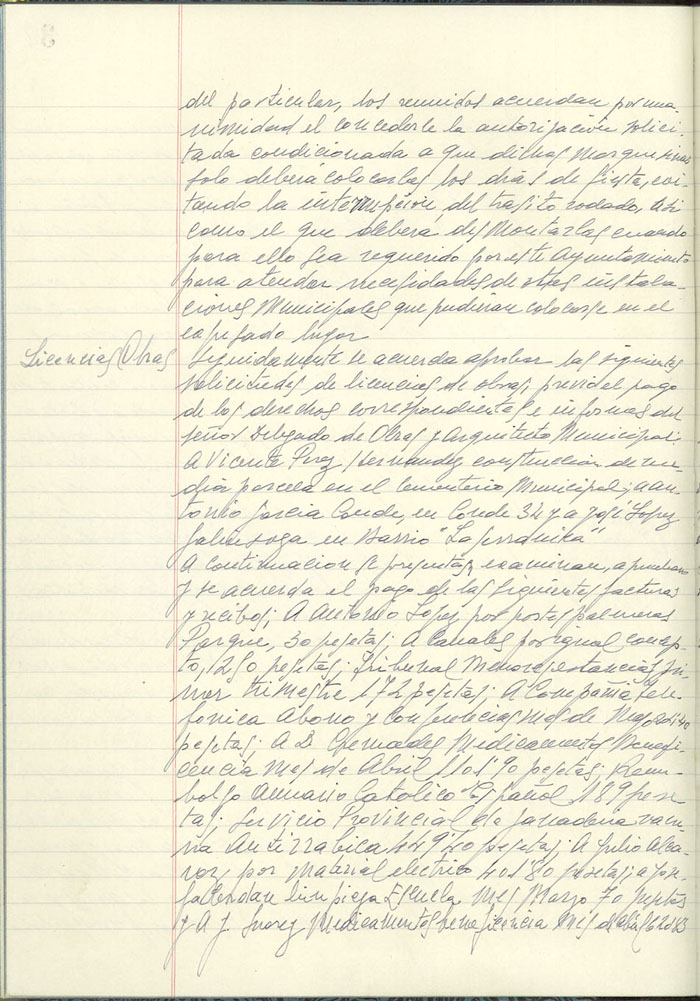 del particular, los reunidos acuerdan por una-
nimidad el concederle la autorización solici-
tada condicionada a que dichas Marquesinas
solo deberá colocarlas los dias de fiesta, evi-
tando la interrupción del trafito rodado, asi
como el que deberá desmontarlas cuando
para ello sea requerido por este Ayuntamiento
para atender necesidades de otras instala-
ciones Municipales que pudieran colocarse en el
expresado lugar
Licencias Obras
Seguidamente se acuerda aprobar las siguientes
solicitudes de licencias de obras, previo el pago
de los derechos correspondientes e informes del
señor Delegado de Obras y Arquitecto Municipal:
A Vicente Perez Hernandez construccion de me-
dia parcela en el Cementerio Municipal; a An-
tonio Garcia Conde, en Conde 34 y a José Lopez
en Barrio "La Serranica"
A continuacion se presentan, examinan, aprueban
y se acuerda el pago de las siguientes facturas
y recibos; A Antonio Lopez por portes palmeras
Parque, 30 pesetas; A Canales por igual concep-
to, 1250 pesetas; Tribunal Menores estancias pri-
mer trimestre 172 pesetas; A Compañia Tele-
fonica Abono y conferencias mes de
pesetas; A D. Medicamentos Benefi-
cencia mes de Abril 1101'90 pesetas; Reem-
bolso Anuario Catolico Español 189 pese-
tas; Servicio Provincial de Ganaderia vacu-
na Antirrabica pesetas; A Julio Alca-
raz, por material electrico 401'80 pesetas; a
limpieza Escuela mes Marzo 70 pesetas
y A J. Suarez Medicamentos beneficencia mes de Abril